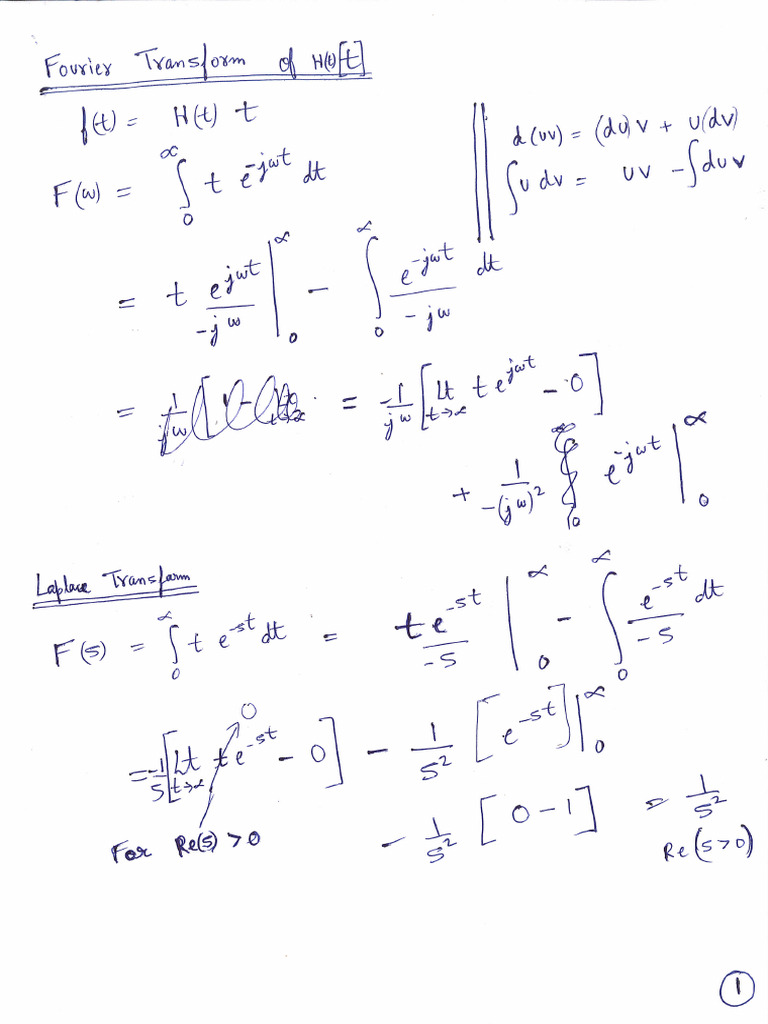 Fourier Transform of H(t)[t]
f(t) = H(t) t
d(uv) = (du)v + u(dv)
∫u dv = uv - ∫du v
F(ω) = ∫_0^∞ t e^{-jωt} dt
= t e^{jωt}/(-jω) |_0^∞ - ∫_0^∞ e^{-jωt}/(-jω) dt
= 1/(jω) [ = -1/(jω) [Lt_{t→∞} t e^{jωt} - 0]
+ 1/(-(jω)^2) e^{-jωt} |_0^∞
Laplace Transform
F(s) = ∫_0^∞ t e^{-st} dt = t e^{-st}/(-s) |_0^∞ - ∫_0^∞ e^{-st}/(-s) dt
0
= -1/s [Lt_{t→∞} t e^{-st} - 0] - 1/s^2 [e^{-st}] |_0^∞
For Re(s) > 0
- 1/s^2 [0 - 1] = 1/s^2
Re(s>0)
1